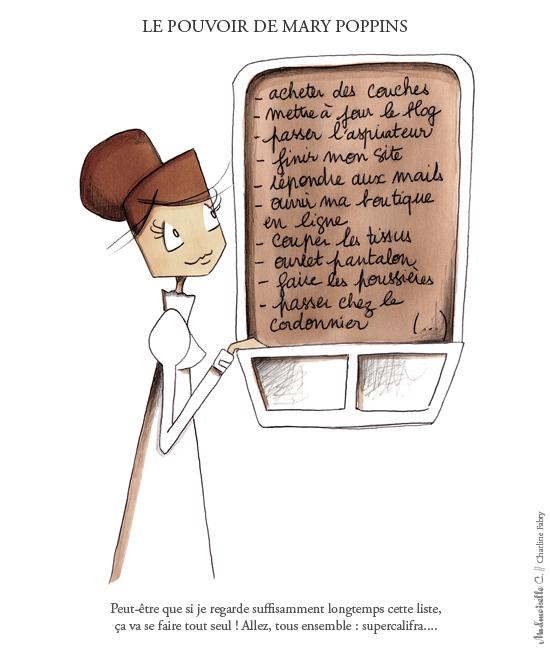 LE POUVOIR DE MARY POPPINS
- acheter des couches
- mettre à jour le blog
- passer l'aspirateur
- finir mon site
- répondre aux mails
- ouvrir ma boutique
en ligne
- couper les tissus
- pantalon
- faire les poussières
- passer chez le
cordonnier (...)
Peut-être que si je regarde suffisamment longtemps cette liste,
ça va se faire tout seul ! Allez, tous ensemble : supercalifra....
Mad'moiselle C. // Charline Fabry